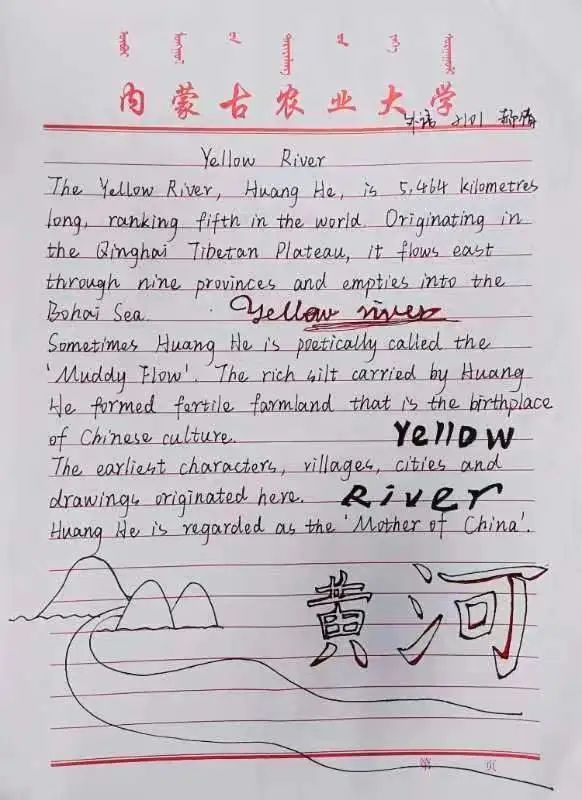 内蒙古农业大学
外语 2101
Yellow River
The Yellow River, Huang He, is 5,464 kilometres
long, ranking fifth in the world. Originating in
the Qinghai Tibetan Plateau, it flows east
through nine provinces and empties into the
Bohai Sea.
Yellow river
Sometimes Huang He is poetically called the
'Muddy Flow'. The rich silt carried by Huang
He formed fertile farmland that is the birthplace
of Chinese culture.
Yellow
The earliest characters, villages, cities and
drawings originated here.
River
Huang He is regarded as the 'Mother of China'.
黄河
第 页